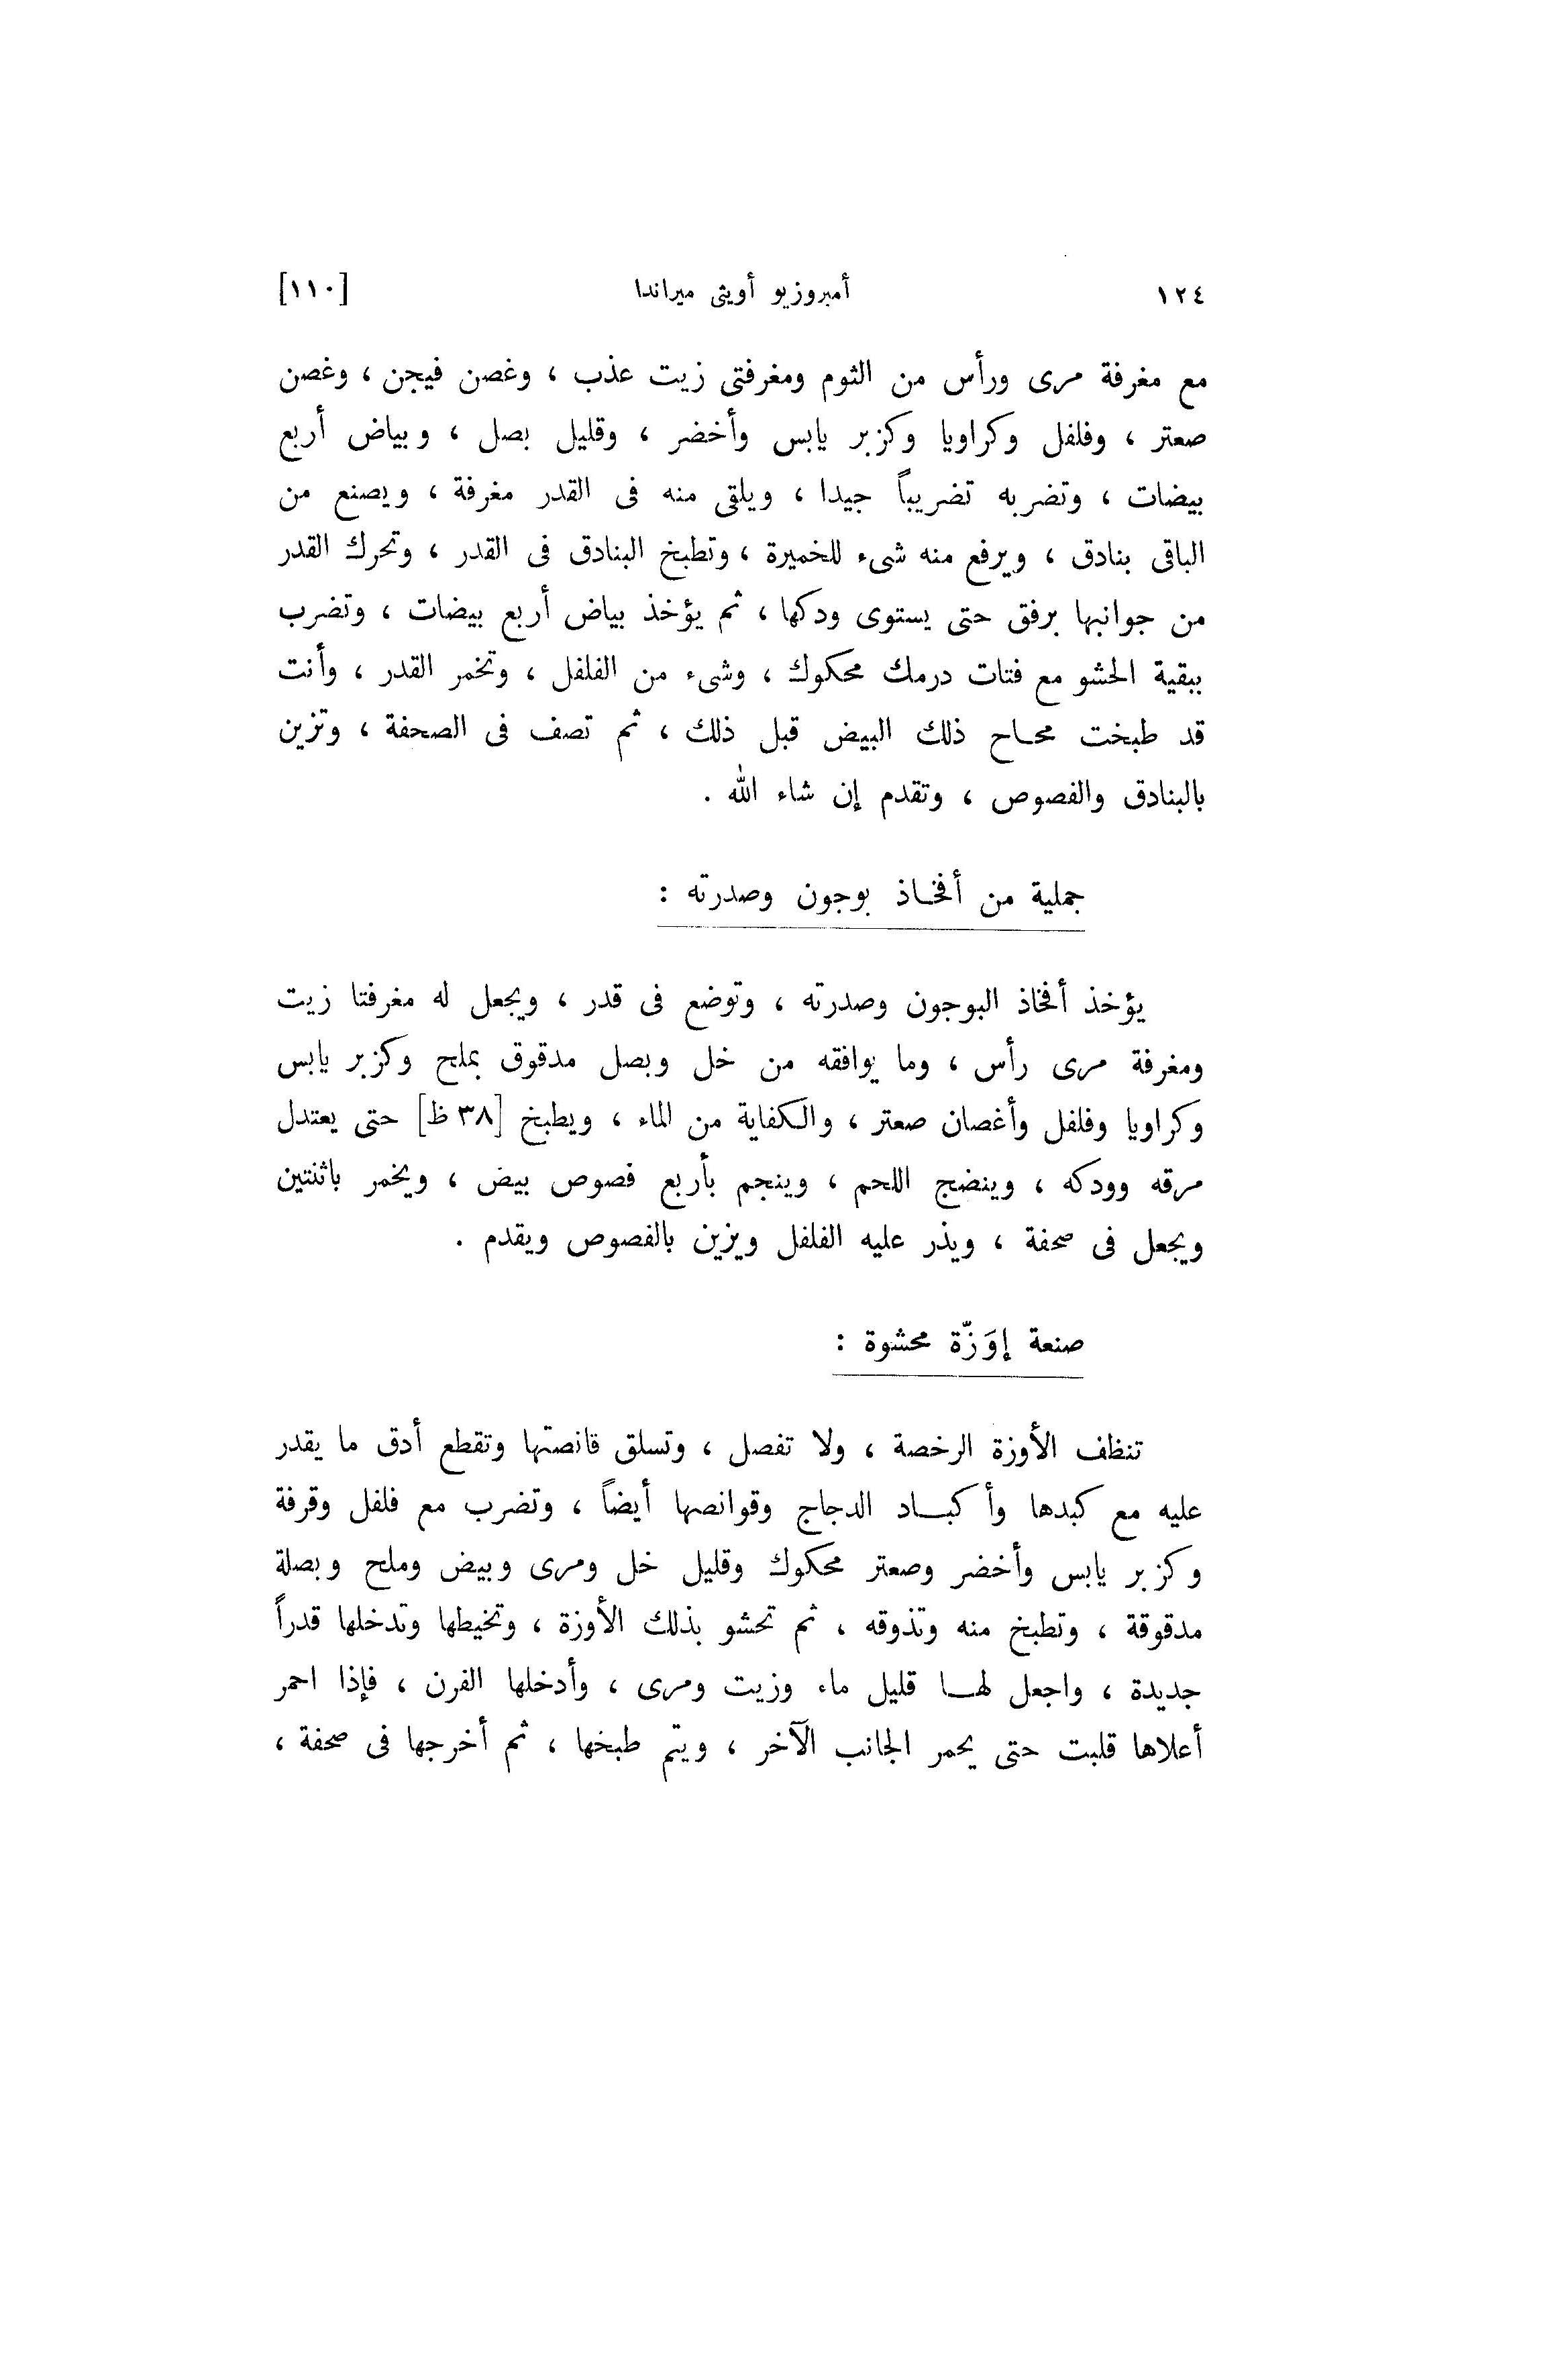 ١٢٤ أمبروزيو أويثى ميراندا [١١٠]
مع مغرفة مرى ورأس من الثوم ومغرفتى زيت عذب ، وغصن فيجن ، وغصن
صعتر ، وفلفل وكراويا وكزبر يابس وأخضر ، وقليل بصل ، وبياض أربع
بيضات ، وتضربه تضريباً جيدا ، ويلقى منه فى القدر مغرفة ، ويصنع من
الباقى بنادق ، ويرفع منه شىء للخميرة ، وتطبخ البنادق فى القدر ، وتحرك القدر
من جوانبها برفق حتى يستوى ودكها ، ثم يؤخذ بياض أربع بيضات ، وتضرب
ببقية الحشو مع فتات درمك محكوك ، وشىء من الفلفل ، وتخمر القدر ، وأنت
قد طبخت محاح ذلك البيض قبل ذلك ، ثم تصف فى الصحفة ، وتزين
بالبنادق والفصوص ، وتقدم إن شاء الله .
جملية من أفخاذ بوجون وصدرته :
يؤخذ أفخاذ البوجون وصدرته ، وتوضع فى قدر ، ويجعل له مغرفتا زيت
ومغرفة مرى رأس ، وما يوافقه من خل وبصل مدقوق بملح وكزبر يابس
وكراويا وفلفل وأغصان صعتر ، والكفاية من الماء ، ويطبخ [٣٨ ظ] حتى يعتدل
مرقه وودكه ، وينضج اللحم ، وينجم بأربع فصوص بيض ، ويخمر باثنتين
ويجعل فى صحفة ، ويذر عليه الفلفل ويزين بالفصوص ويقدم .
صنعة إوَزّة محشوة :
تنظف الأوزة الرخصة ، ولا تفصل ، وتسلق قانصتها وتقطع أدق ما يقدر
عليه مع كبدها وأكباد الدجاج وقوانصها أيضاً ، وتضرب مع فلفل وقرفة
وكزبر يابس وأخضر وصعتر محكوك وقليل خل ومرى وبيض وملح وبصلة
مدقوقة ، وتطبخ منه وتذوقه ، ثم تحشو بذلك الأوزة ، وتخيطها وتدخلها قدراً
جديدة ، واجعل لها قليل ماء وزيت ومرى ، وأدخلها الفرن ، فإذا احمر
أعلاها قلبت حتى يحمر الجانب الآخر ، ويتم طبخها ، ثم أخرجها فى صحفة ،